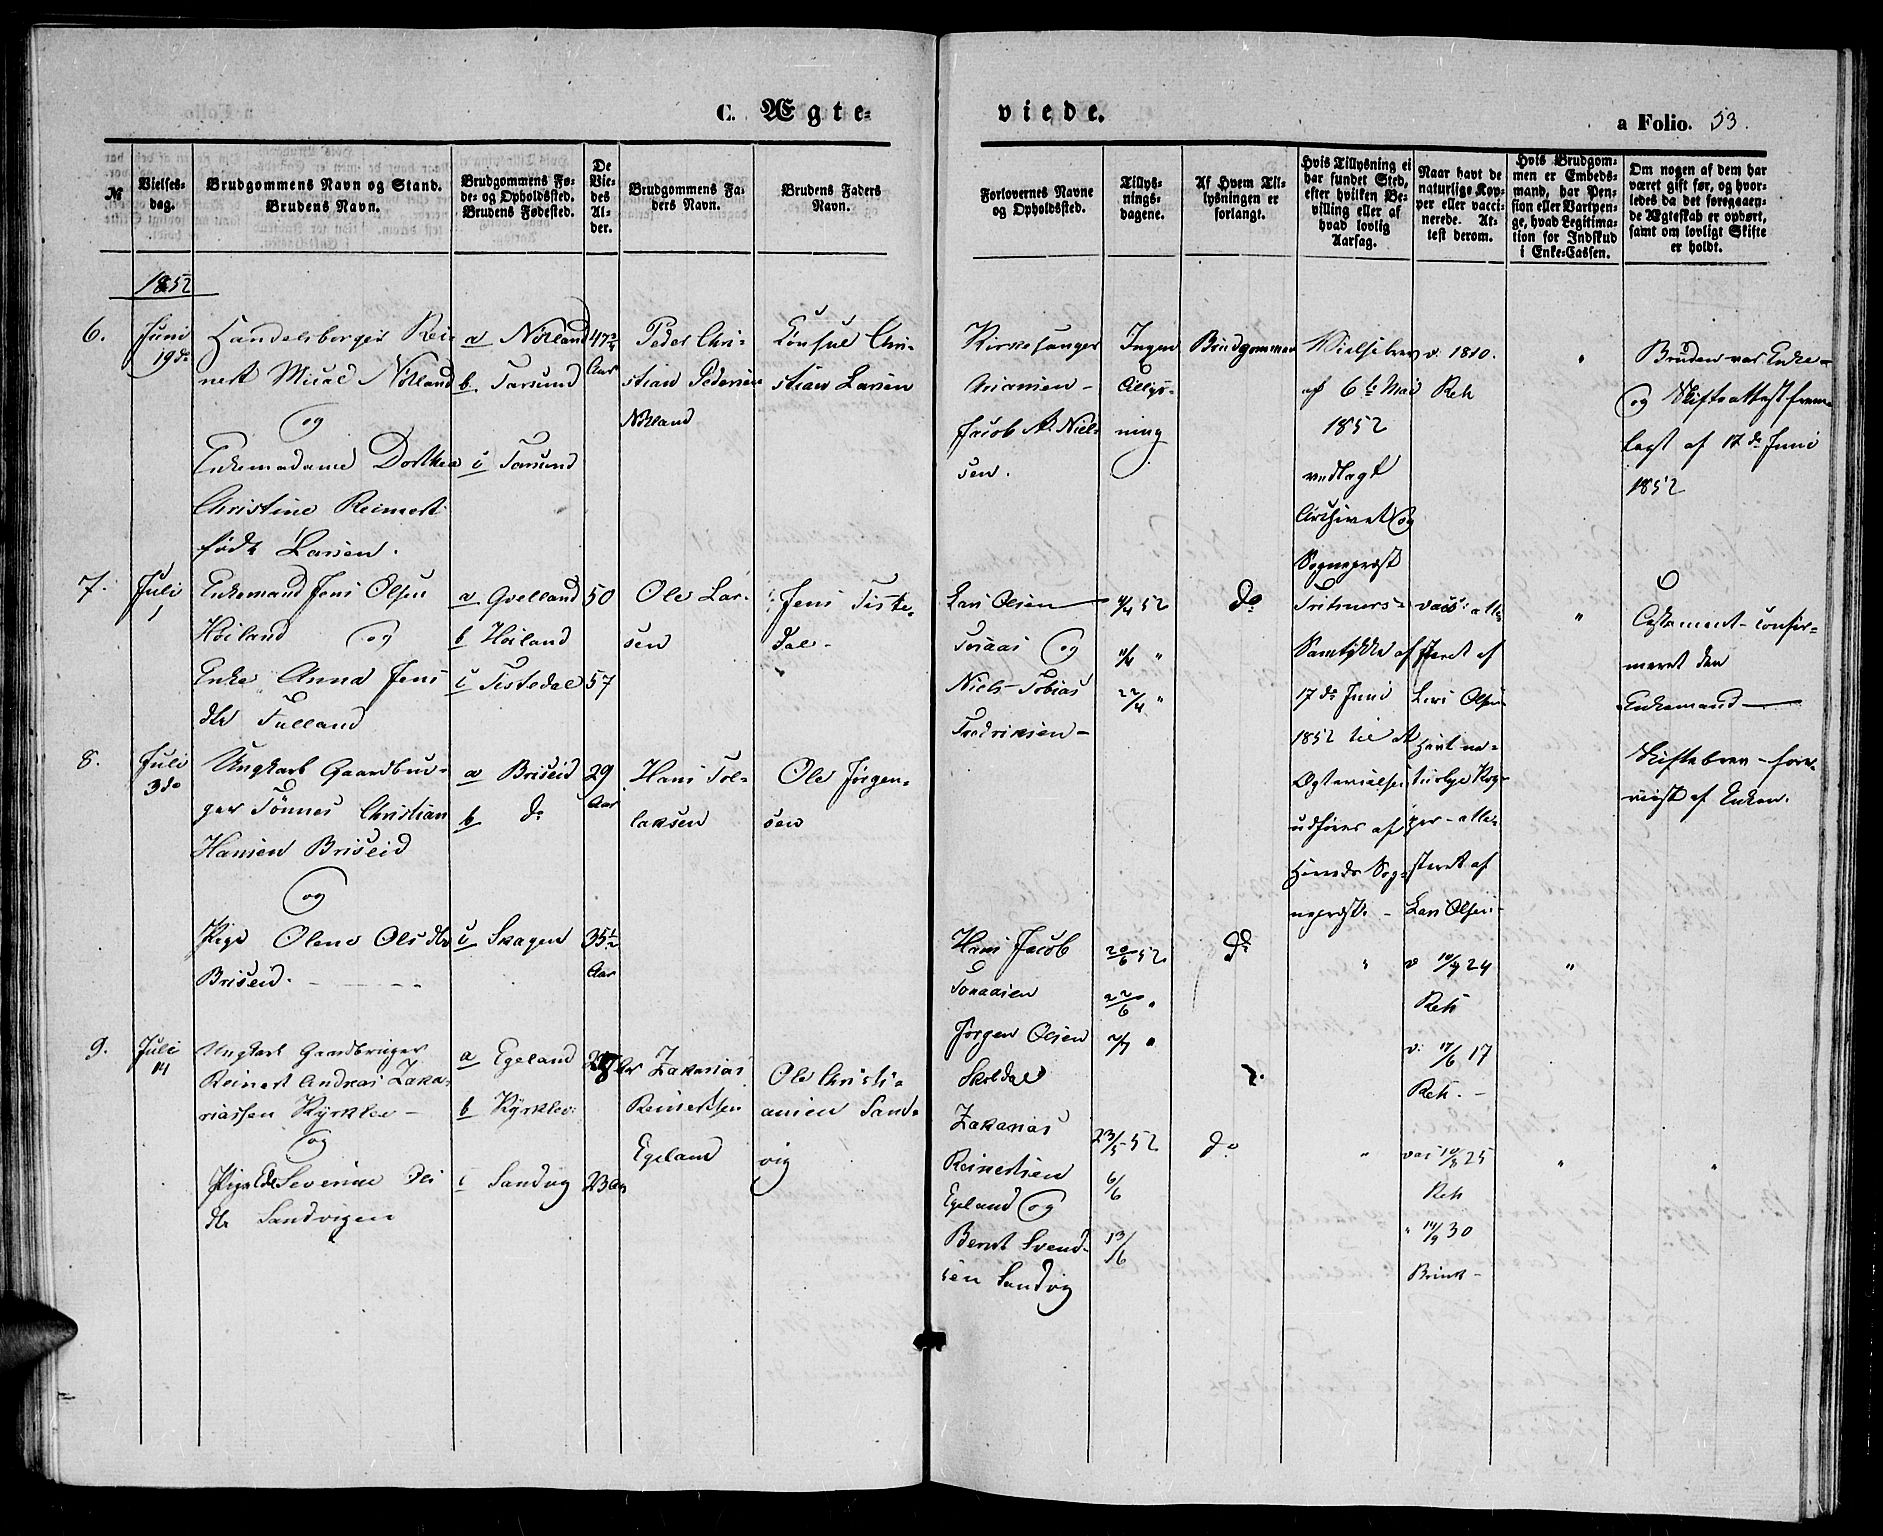 C. Ægte-
viede.
a Folio. 53.
№
Vielses-
dag.
Brudgommens Navn og Stand.
Brudens Navn.
Brudgommens Fø-
de- og Opholdssted.
Brudens Fødested.
De
Vie-
des
Al-
der.
Brudgommens Fa-
ders Navn.
Brudens Faders
Navn.
Forlovernes Navne
og Opholdssted.
Tillys-
nings-
dagene.
Af Hvem Til-
lysningen er
forlangt.
Hvis Tillysning ei
har fundet Sted,
efter hvilken Be-
villing eller af
hvad lovlig
Aarsag.
Naar havt de
naturlige Kop-
per eller vacci-
nerede. At-
test derom.
Hvis Brudgom-
men er Embeds-
mand, har Pen-
sion eller Vartpen-
ge, hvad Legitima-
tion for Indskud
i Enke-Cassen.
Om nogen af dem har
været gift før, og hvor-
ledes da det foregaaen-
de Ægteskab er ophørt,
samt om lovligt Skifte
er holdt.
1852
6.
Juni
19de
Handelsborger Rei-
nert Nøland
og
Enkemadame Dorthea
Christine Reimert
født Larsen.
a Nøland
b Farsund
c Farsund
47
Aar
Peder Chri-
stian Pedersen
Nøland
Consul Chri-
stian Larsen
Kirkesanger
Jacob N. Niel-
sen.
Ingen
Tillys-
ning
Brudgommen
Vielsebrev
af 6te Mai
1852
vedlagt
Archivet og
Sogneprest
v. 1810.
Reh
"
Bruden var Enke-
og Skifteattest frem-
lagt af 12de Juni
1852
7.
Juli
1
Enkemand Jens Olsen
Høiland og
Enke Anna Jens
dtr
a Qvelland
b Høiland
c Tistedal
50
57
Ole Lar-
sen
Jens Tiste-
dal-
Lars Olsen
og
Niels Tobias
Fredriksen-
52
"
22/4 "
do
Samtykke af
17de Juni
1852 til at
udføres af
Herreds Sog-
neprest. -
vac: atte-
steret af
Lars Olsen-
havt na-
turlige Kop-
per - atte-
steret af
Lars Olsen-
"
Testament- confir-
meret den
Enkemand
Skiftebrev - fore-
viist af Enken.
8.
Juli
3de
Ungkarl Gaardbru-
ger Tønnes Christian
Hansen Briseid
og
Pige Olene Olsdtr
Briseid.
a Briseid
b do
c Skagen
29
Aar
35½
Aar
Hans Tol-
laksen
Ole Jørgen-
sen
Hans Jacob
Jørgen Olsen
Skoldal
20/6 52
22/6 "
"
do
"
v 24
Reh
v. 17
Reh. -
"
9.
Juli
14
Ungkarl Gaardbruger
Reinert Andreas Zaka-
riassen Kyrklev-
og
Pige Severine
dtr Sandvigen
a Egeland
b Kyrklev:
c Sandvig
28 Aar
23 Aar
Zakarias
Reinertsen
Egeland
Ole Christi-
ansen Sand-
vig
Zakarias
Reinertsen
Egeland og
Bernt Svend-
sen Sandvig
23/5 52
6/6
13/6
do
"
vac 25
Reh
" 30
Brink-
"
"